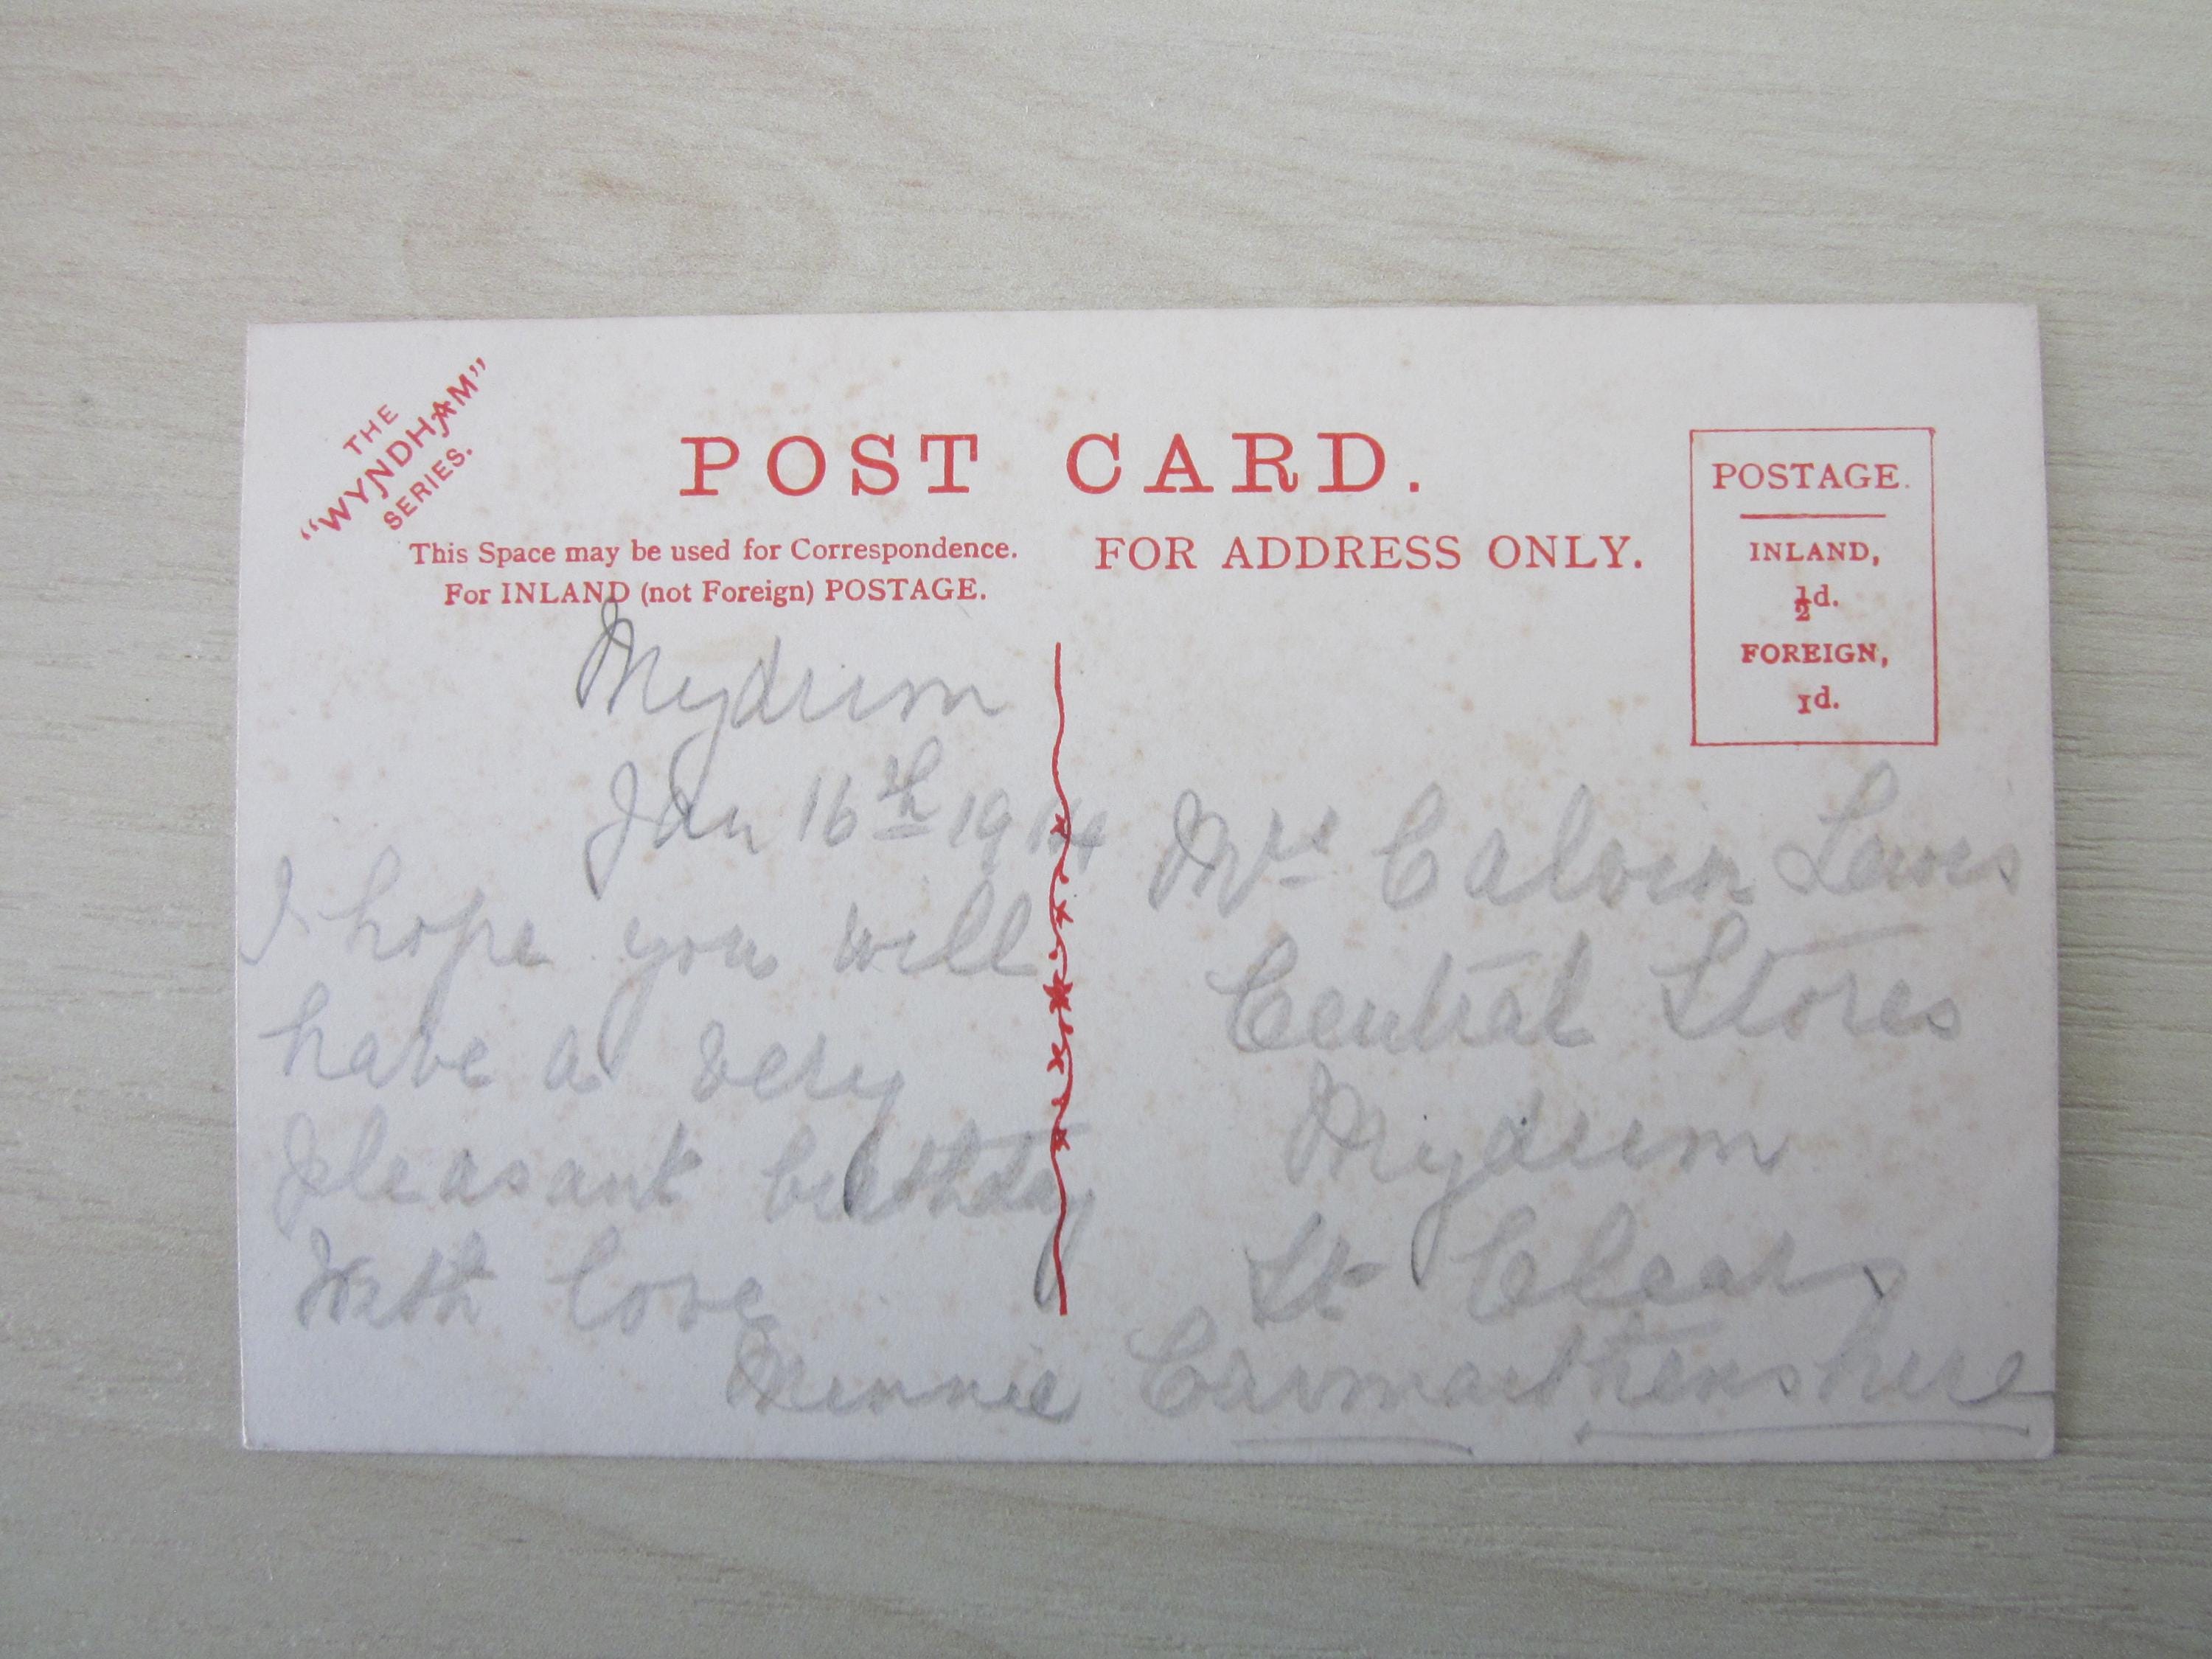 THE
"WYNDHAM"
SERIES.
POST CARD.
This Space may be used for Correspondence.
For INLAND (not Foreign) POSTAGE.
FOR ADDRESS ONLY.
POSTAGE.
INLAND,
½d.
FOREIGN,
1d.
Mydrim
Jan 16th 1914
I hope you will
have a very
pleasant birthday
With love
Minnie
Mrs Calvin Lewis
Central Stores
Mydrim
St Clears
Carmarthenshire